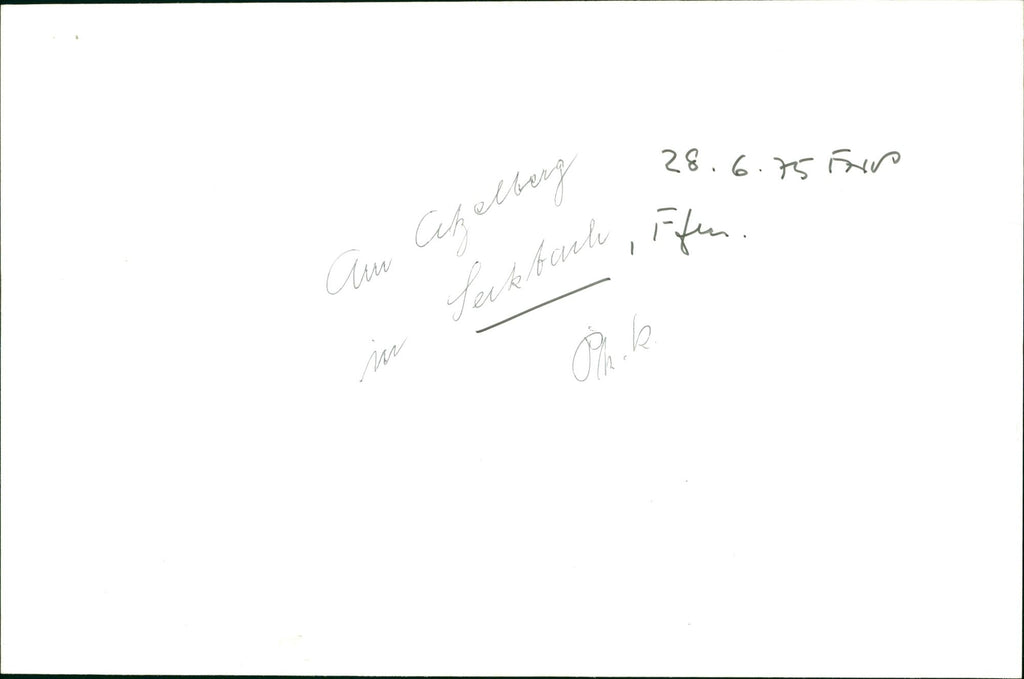 28.6.75 FNP
Am Atzelberg
in Seckbach, Ffm.
Ph.k.